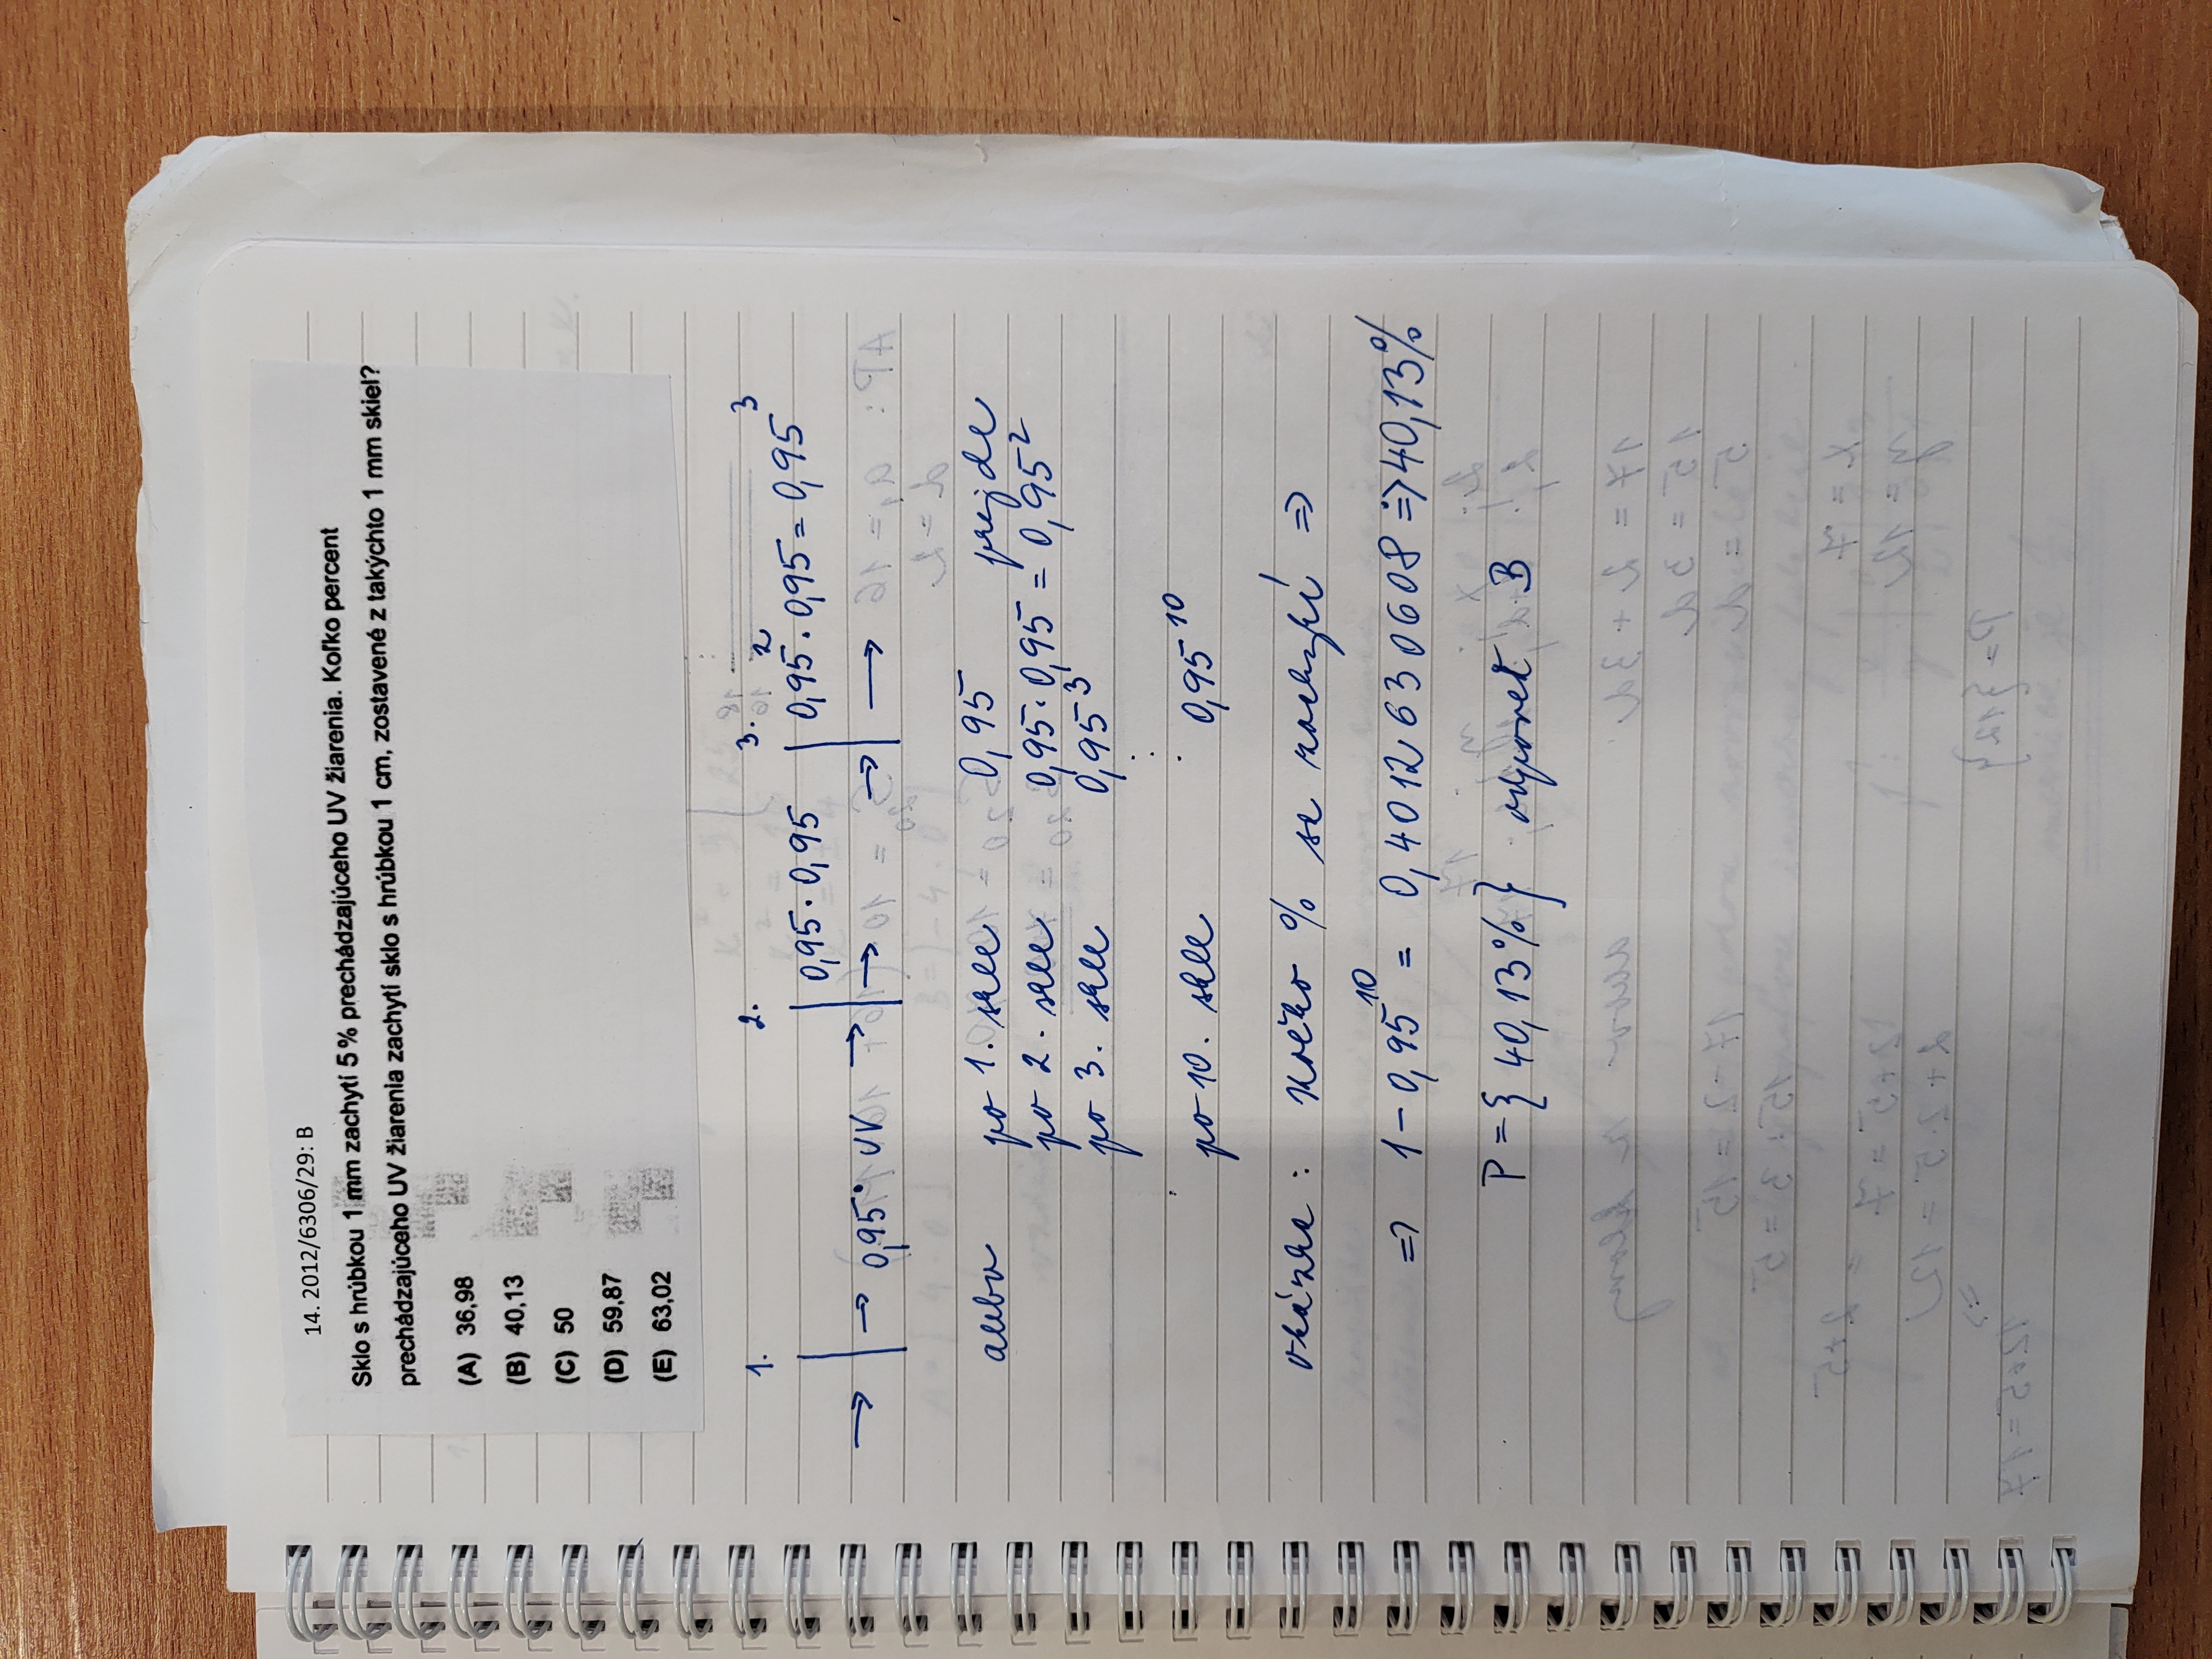 14. 2012/6306/29: B
Sklo s hrúbkou 1 mm zachytí 5 % prechádzajúceho UV žiarenia. Koľko percent
prechádzajúceho UV žiarenia zachytí sklo s hrúbkou 1 cm, zostavené z takýchto 1 mm skiel?
(A) 36,98
(B) 40,13
(C) 50
(D) 59,87
(E) 63,02
1. 2. 3. 2 3
0,95 · 0,95 0,95 · 0,95 = 0,95
→ | → 0,95 · UV → | → → | →
alebo po 1. skle 0,95 prejde
po 2. skle 0,95 · 0,95 = 0,95²
po 3. skle 0,95³
⋮
po 10. skle 0,95¹⁰
otázka : koľko % sa zachytí ⇒
⇒ 1 - 0,95¹⁰ = 0,4012630608 ⇒ 40,13%
P = { 40,13% } odpoveď B